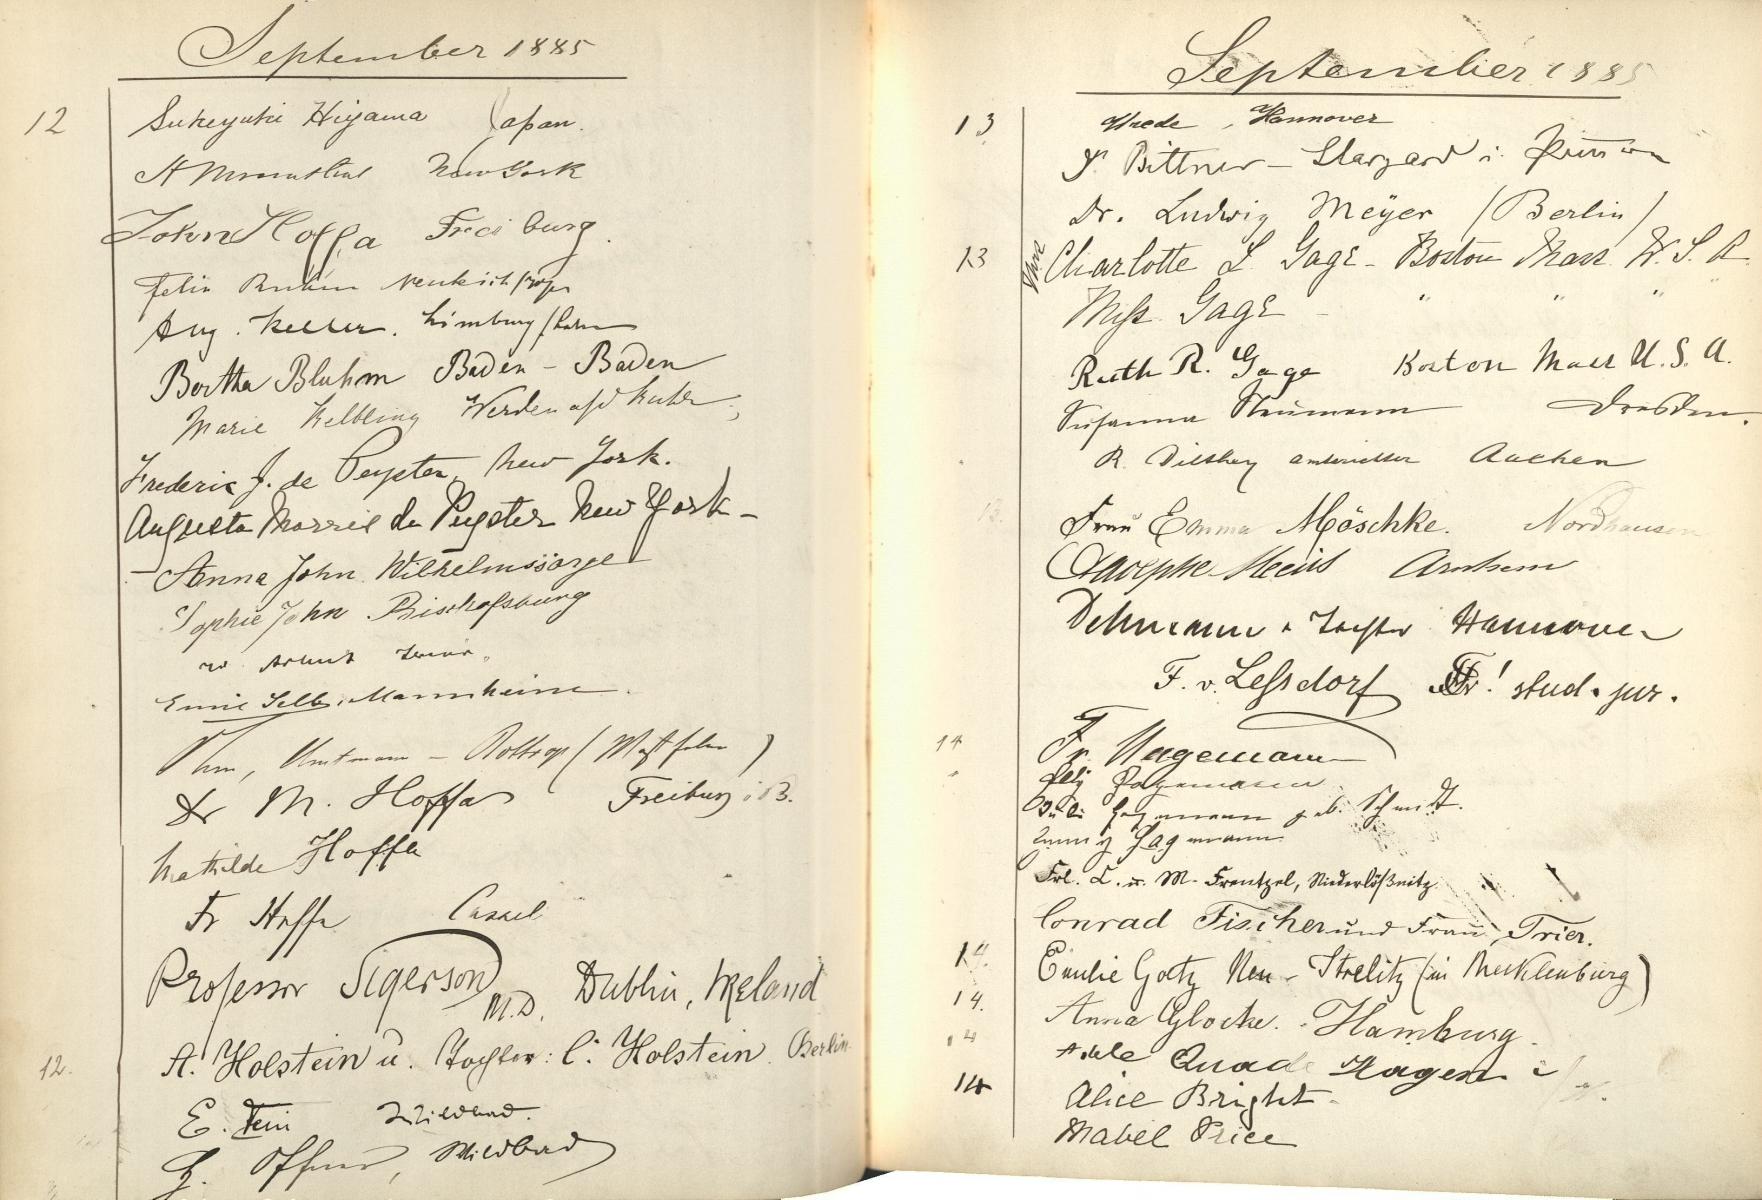 September 1885
12 Sukeyuki Hiyama Japan.
New York
John Hoffa Freiburg.
Felix
Aug. Keller. Limburg/Lahn
Bertha Bluhm Baden-Baden
Marie Helbling Werden a/d Ruhr
Frederic J. de Peyster, New York.
Augusta Morris de Peyster New York -
- Anna John Wilhelmssorge
Sophie John Bischofsburg
Emil Selb, Mannheim.
Amtmann - Bottrop (Westfalen)
Dr M. Hoffa Freiburg i B.
Mathilde Hoffa
Fr Hoffa Cassel
Professor Sigerson M.D. Dublin, Ireland
12. A. Holstein u. Tochter: C. Holstein Berlin
E. Fein Wildbad.
Wildbad
September 1885
13 Wrede, Hannover
Bittner - Stargard i.
Dr. Ludwig Meyer (Berlin)
13 Charlotte L Gage - Boston Mass U. S. A
Miss Gage - " " " "
Ruth R. Gage Boston Mass U. S. A.
Susanna Neumann Dresden.
R. Dilthey Aachen
13. Frau Emma Möschke. Nordhausen
Arnhem
u Tochter Hannover
F. v. Leßdorf Fr! stud. jur.
14 Fr. Hagemann
Hagemann
Hagemann geb. Schmidt.
Hagemann
Frl. L. u. M. Frentzel, Niederlößnitz.
Conrad Fischer und Frau, Trier.
14. Emilie Goetz Neu-Strelitz (in Mecklenburg)
14. Anna Glocke. Hamburg.
14 Adele Quade Hagen i/W.
14 Alice Bright
Mabel Price